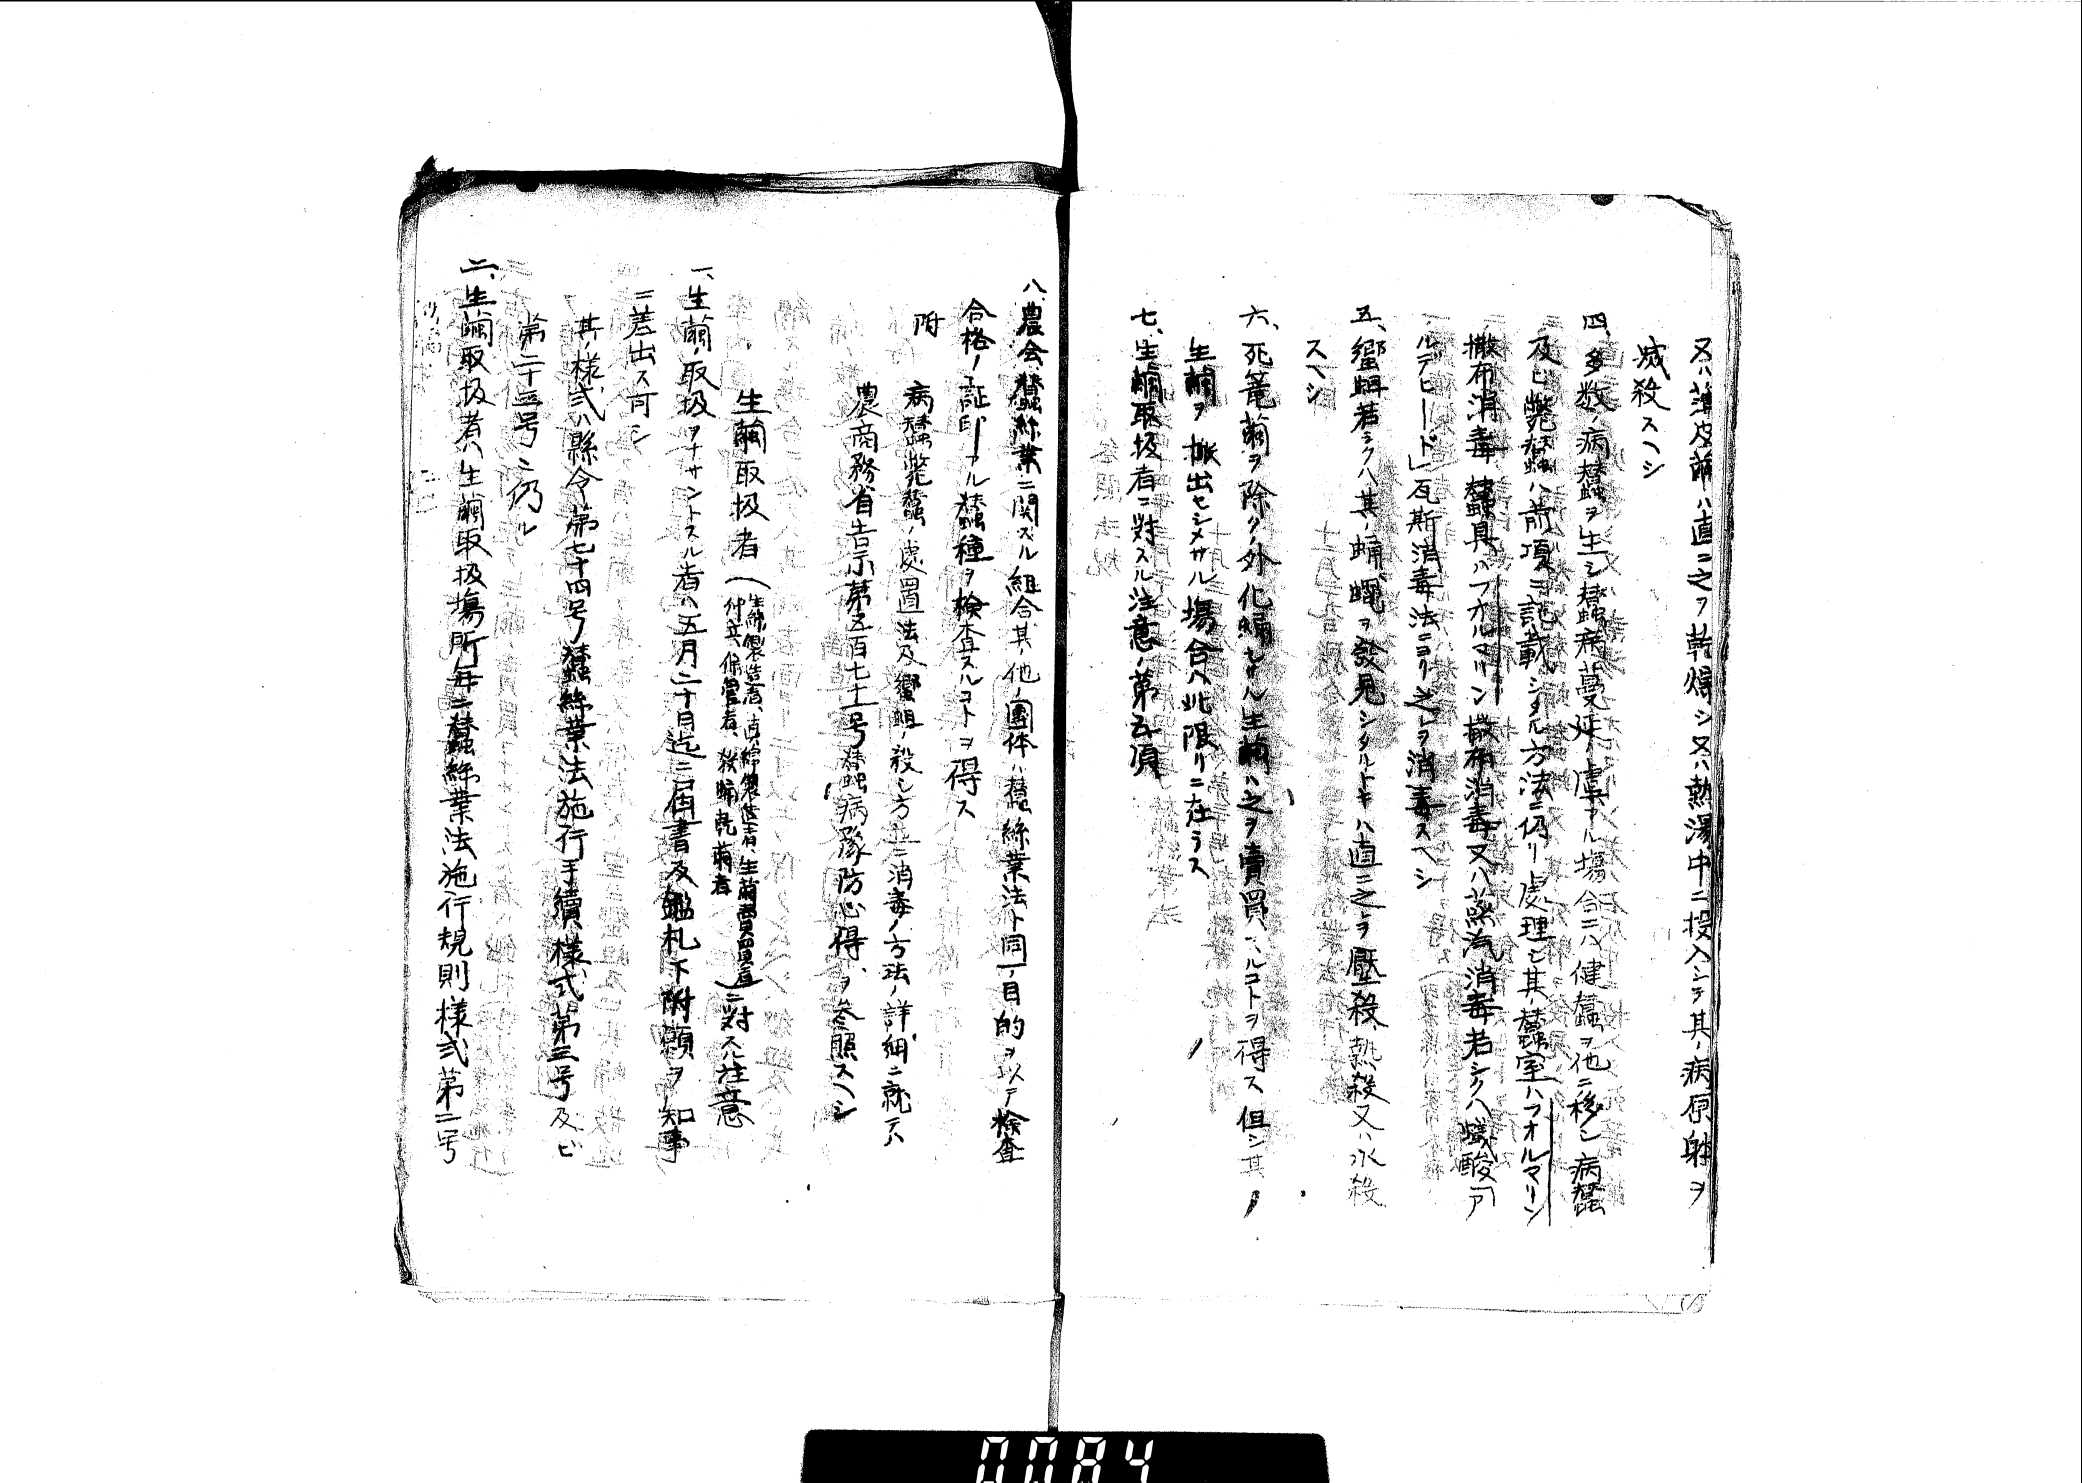 又ハ薄皮繭ハ直ニ之ヲ乾燥シ又ハ熱湯中ニ投入シテ其ノ病原躰ヲ
滅殺スヘシ
四、多数ノ病蚕ヲ生シ蠶病蔓延ノ虞アル場合ニハ健蠶ヲ他ニ移シ病蠶
及ビ斃蚕ハ前項ニ記載シタル方法ニ仍リ處理シ其ノ蠶室ハフオルマリン
撒布消毒蠶具ハフオルマリン撒布消毒又ハ蒸汽消毒若シクハ蟻酸「ア
ルデヒード」瓦斯消毒法ニヨリ之レヲ消毒スヘシ
五、蠁蛆若シクハ其ノ蛹蠅ヲ發見シタルトキハ直ニ之ヲ壓殺、熱殺又ハ水殺
スヘシ
六、死篭繭ヲ除クノ外化蛹シタル生繭ハ之ヲ賣買スルコトヲ得ス但シ其ノ
生繭ヲ搬出セシメサル場合ハ此限リニ在ラス
七、生繭取扱者ニ對スル注意ノ第五項
八、農会、蠶絲業ニ関スル組合其ノ他ノ團体ハ蠶絲業法ト同一ノ目的ヲ以テ檢査
合格ノ証印アル蠶種ヲ檢査スルコトヲ得ス
附
病蠶斃蠶ノ處置法及蠁蛆ノ殺シ方並ニ消毒ノ方法ノ詳細ニ就テハ
農商務省告示第五百七十一号蠶病豫防心得ヲ参照スヘシ
生繭取扱者(生絲製造者、真綿製造者、生繭賣買者
仲立、保管者、殺蛹乾繭者)ニ對スル注意
一、生繭ノ取扱ヲナサントスル者ハ五月二十日迄ニ届書及鑑札下附願ヲ知事
ニ差出ス可シ
其ノ様式ハ縣令第七十四号蠶絲業法施行手續様式第三号及ビ
第二十三号ニ仍ル
二、生繭取扱者ハ生繭取扱場所毎ニ蠶絲業法施行規則様式第二号
0084